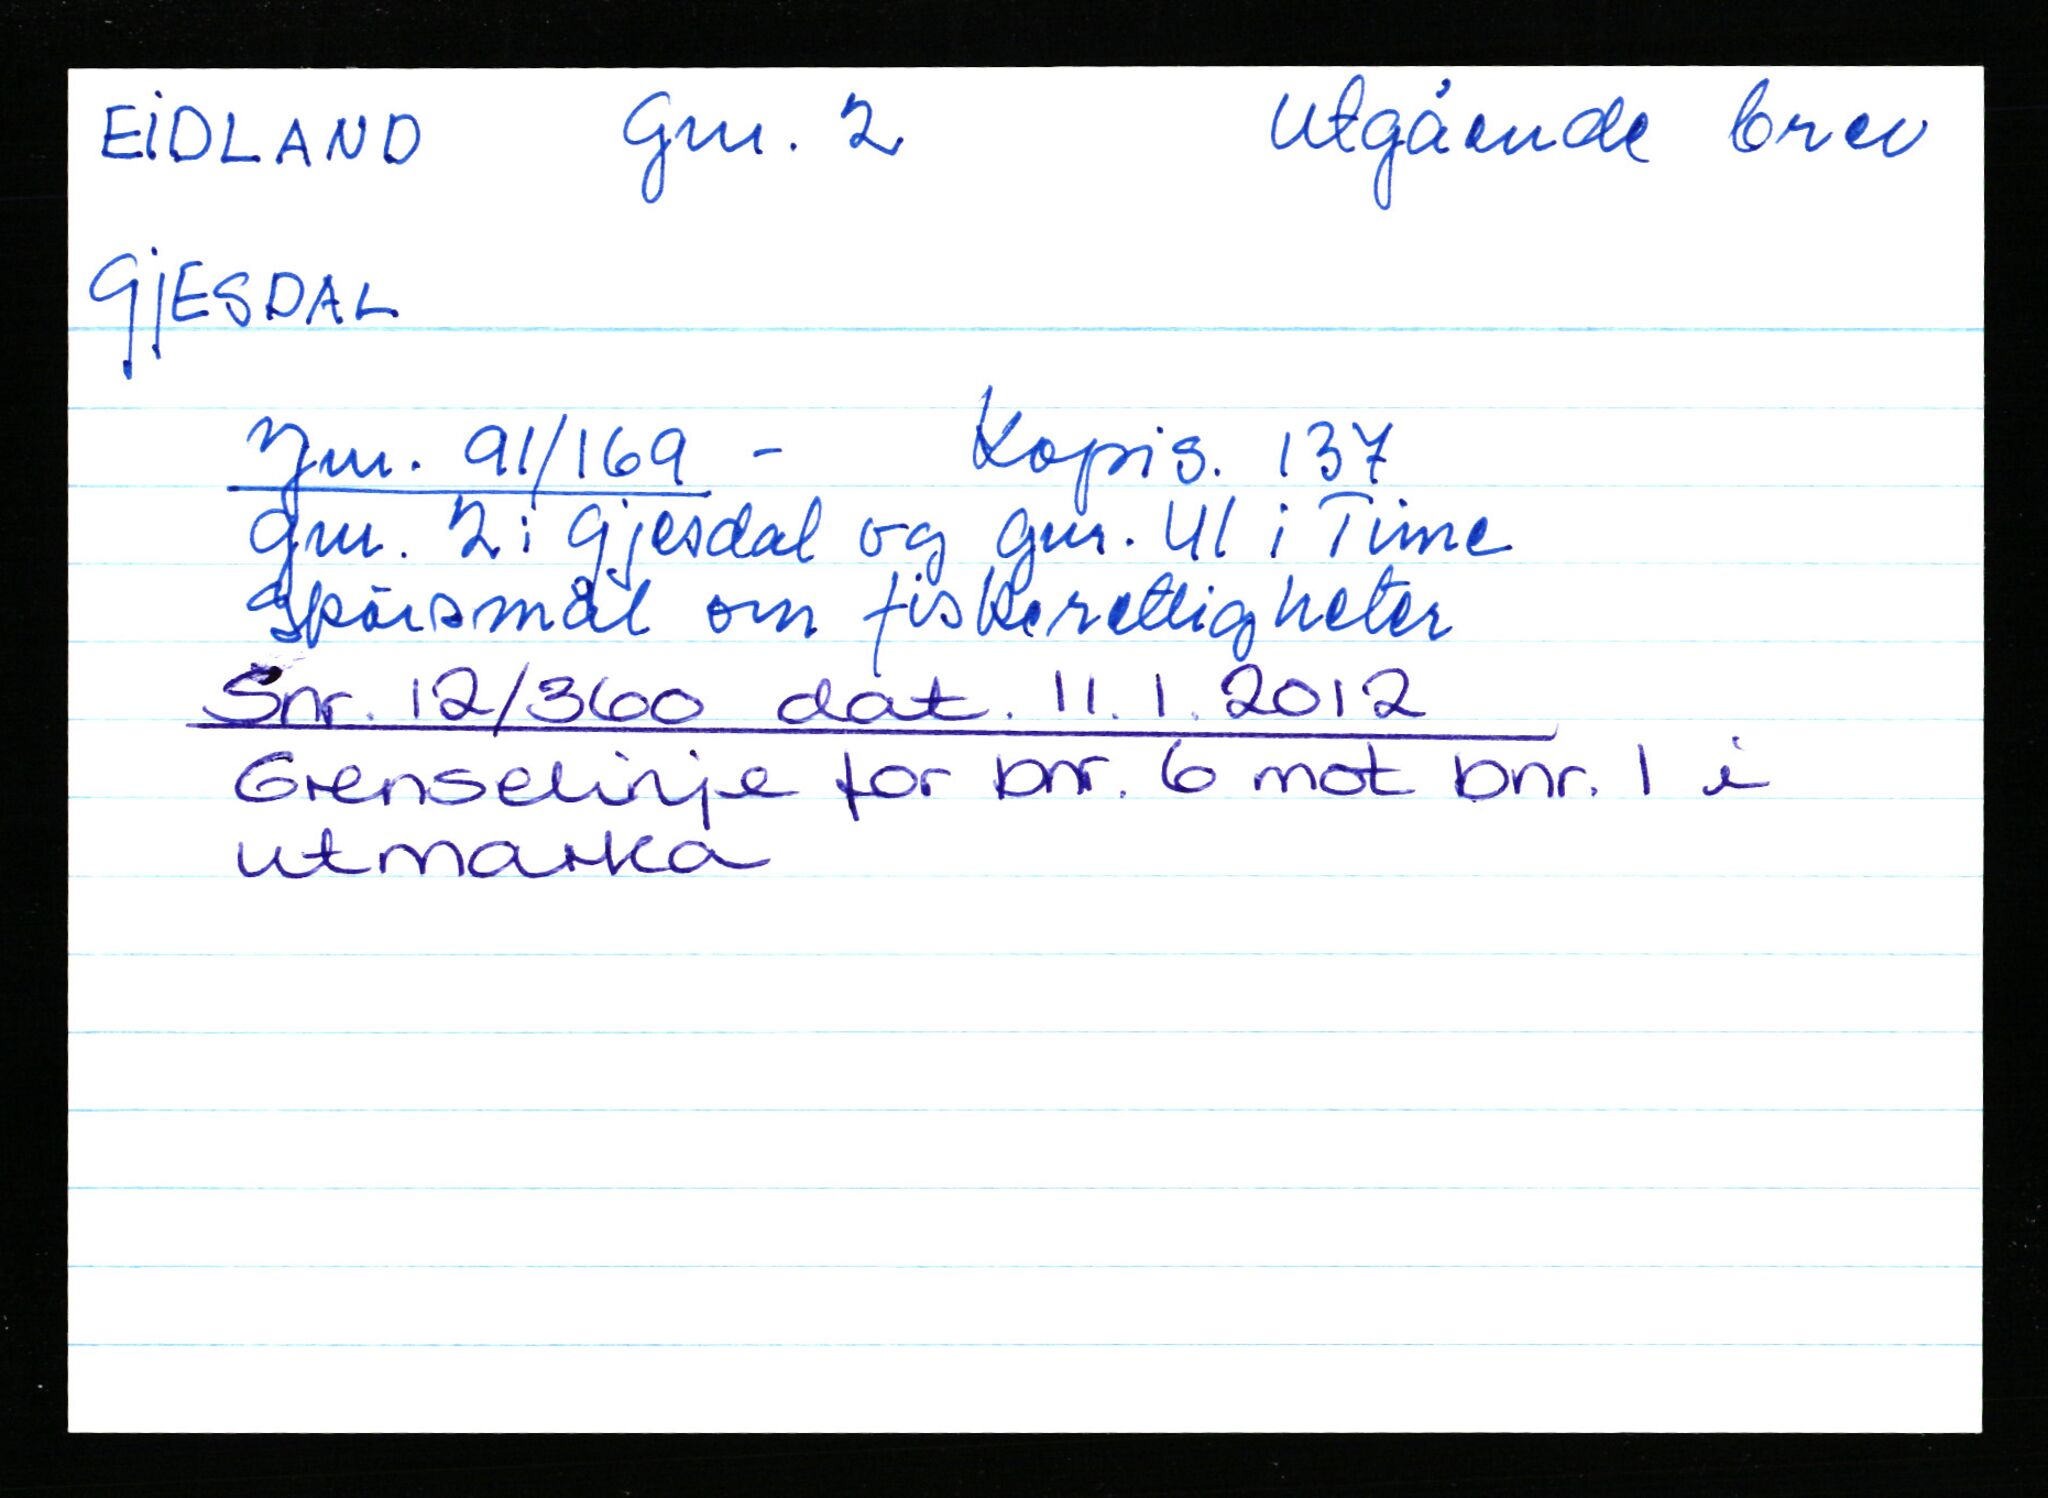 EIDLAND Gnr. 2 Utgående brev
GJESDAL
Jnr. 91/169 - Kopis. 137
gnr. 2 i Gjesdal og gnr. 41 i Time
Spörsmål om fiskerettigheter
Snr. 12/360 dat. 11.1.2012
Grenselinje for bnr. 6 mot bnr. 1 i
utmarka